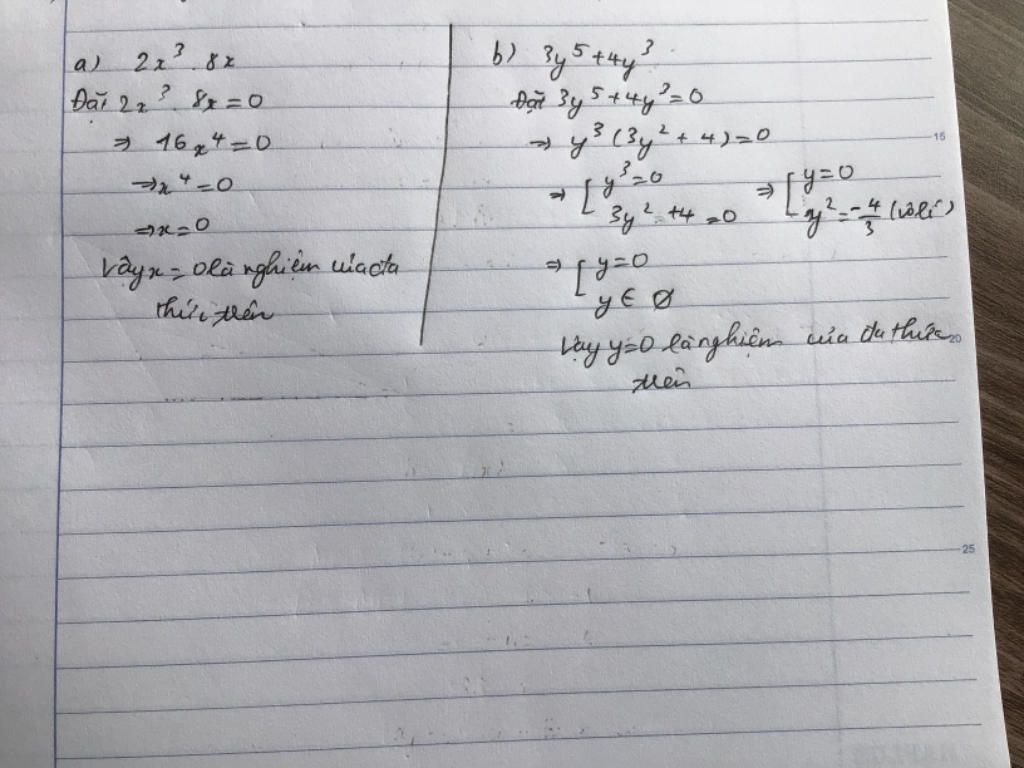 a) 2x³ . 8x
Đặt 2x³ . 8x = 0
⇒ 16x⁴ = 0
⇒ x⁴ = 0
⇒ x = 0
Vậy x = 0 là nghiệm của đa
thức trên
b) 3y⁵ + 4y³
Đặt 3y⁵ + 4y³ = 0
⇒ y³ (3y² + 4) = 0
⇒ [ y³ = 0 ⇒ [ y = 0
3y² + 4 = 0 y² = -4/3 (vô lí)
⇒ [ y = 0
y ∈ Ø
Vậy y = 0 là nghiệm của đa thức
trên
15
20
25